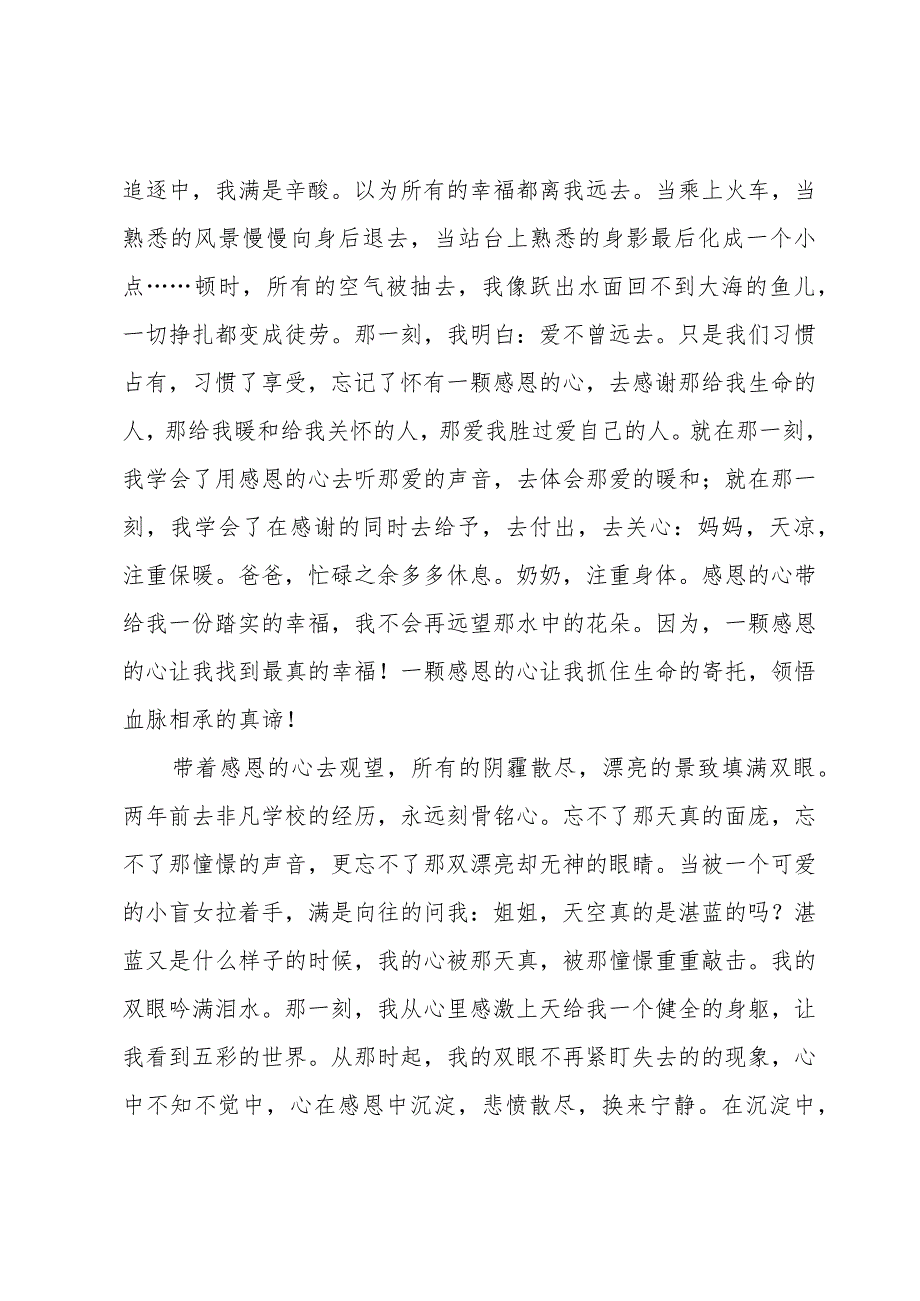 追逐中，我满是辛酸。以为所有的幸福都离我远去。当乘上火车，当
熟悉的风景慢慢向身后退去，当站台上熟悉的身影最后化成一个小
点……顿时，所有的空气被抽去，我像跃出水面回不到大海的鱼儿，
一切挣扎都变成徒劳。那一刻，我明白：爱不曾远去。只是我们习惯
占有，习惯了享受，忘记了怀有一颗感恩的心，去感谢那给我生命的
人，那给我暖和给我关怀的人，那爱我胜过爱自己的人。就在那一刻，
我学会了用感恩的心去听那爱的声音，去体会那爱的暖和；就在那一
刻，我学会了在感谢的同时去给予，去付出，去关心：妈妈，天凉，
注重保暖。爸爸，忙碌之余多多休息。奶奶，注重身体。感恩的心带
给我一份踏实的幸福，我不会再远望那水中的花朵。因为，一颗感恩
的心让我找到最真的幸福！一颗感恩的心让我抓住生命的寄托，领悟
血脉相承的真谛！
带着感恩的心去观望，所有的阴霾散尽，漂亮的景致填满双眼。
两年前去非凡学校的经历，永远刻骨铭心。忘不了那天真的面庞，忘
不了那憧憬的声音，更忘不了那双漂亮却无神的眼睛。当被一个可爱
的小盲女拉着手，满是向往的问我：姐姐，天空真的是湛蓝的吗？湛
蓝又是什么样子的时候，我的心被那天真，被那憧憬重重敲击。我的
双眼吟满泪水。那一刻，我从心里感激上天给我一个健全的身躯，让
我看到五彩的世界。从那时起，我的双眼不再紧盯失去的的现象，心
中不知不觉中，心在感恩中沉淀，悲愤散尽，换来宁静。在沉淀中，